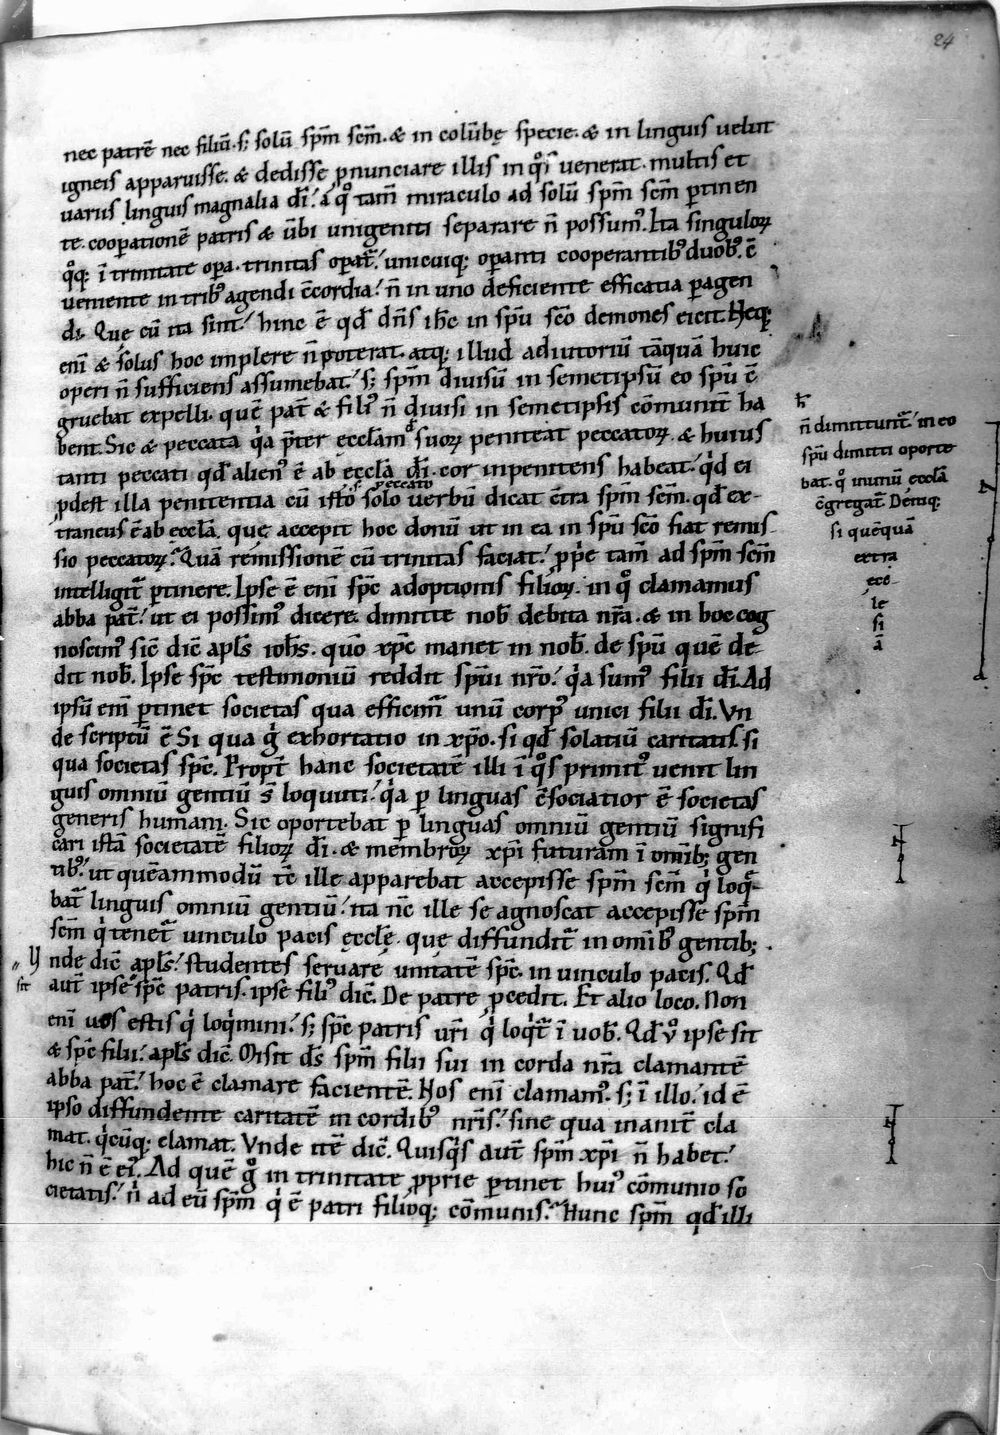 24
nec patrē nec filiū. s; solū spm̄ scm̄. & in colūbę specie. & in linguis uelut
igneis apparuisse. & dedisse ꝓnunciare illis in qͦs uenerat. multis et
uariis linguis magnalia dī. a qͦ tam̄ miraculo ad solū spm̄ scm̄ ꝑtinen
te. cooꝑationē patris & ūbi unigeniti separare n̄ possumꝰ. Ita singuloꝝ
qͦq; ī trinitate oꝑa. trinitas oꝑat᷑. unicuiq; oꝑanti cooperantibꝰ duobꝰ. ē
ueniente in tribꝰ agendi c̄cordia. n̄ in uno deficiente efficatia ꝑagen
di. Quę cū ita sint. hinc ē qd̄ dn̄s ih̄c in sp̄u sc̄o demones eicit. Neq;
eni̅ & solus hoc implere n̄ poterat. atq; illud adiutoriū tāquā huic
operi n̄ sufficiens assumebat. s; spm̄ diuisū in semetipsū eo sp̄u ē
gruebat expelli. quē pat̄ & filiꝰ n̄ diuisi in semetipsis cōmunit̄ ha
bent. Sic & peccata qͥa p̄ter ecclām
suoꝝ peniteat peccatoꝝ. & huius
tanti peccati qd̄ alienꝰ ē ab ecclā dī. cor inpenitens habeat. qͥd ei
peccato
ꝓdest illa penitentia cū isto solo uerbū dicat c̄tra spm̄ scm̄. qd̄ ex-
traneus ē ab ecclā. quę accepit hoc donū ut in ea in sp̄u sc̄o fiat remis
sio peccatoꝝ. Quā remissionē cū trinitas faciat. ꝓpͥe tam̄ ad spm̄ scm̄
intelligit᷑ ꝑtinere. Ipse ē eni̅ sp̄c adoptionis filioꝝ. in qͦ clamamus
abba pat̄. ut ei possimꝰ dicere. dimitte nob̄ debita nr̄a. & in hoc cog
noscimꝰ sic̄ dic̄ apl̄s ioh̄s. quō xp̄c manet in nob̄. de sp̄u quē de
dit nob̄. Ipse sp̄c testimoniū reddit sp̄ui nr̄o. qͥa sumꝰ filii dī. Ad
ipsū eni̅ ꝑtinet societas qua efficim᷑ unū corpꝰ unici filii dī. Vn
de scriptū ē Si qua gͥ exhortatio in xp̄o. si qd̄ solatiū caritatis. si
qua societas sp̄c. Propt̄ hanc societatē illi ī qͦs primitꝰ uenit lin
guis omniū gentiū s̄ loquuti. qͥa ꝑ linguas c̄sociatior ē societas
generis humani. Sic oportebat ꝑ linguas omniū gentiū signifi
cari istā societatē filioꝝ dī. & membroꝝ xp̄i futuram ī omib; gen
tibꝰ. ut quēammodū tc̄ ille apparebat accepisse spm̄ scm̄ qͥ loq̄-
bat᷑ linguis omniū gentiū. ita nc̄ ille se agnoscat accepisse spm̄
scm̄ qͥ tenet᷑ uinculo pacis ęcclę. que diffundit᷑ in omibꝰ gentib;.
Vnde dic̄ apl̄s. studentes seruare unitatē sp̄c. in uinculo pacis. Qd̄
sit
aut̄ ipse sp̄c patris. ipse filiꝰ dic̄. De patre ꝓcedit. Et alio loco. Non
eni̅ uos estis qͥ loqͥmini. s; sp̄c patris ur̄i qͥ loqͥt᷑ ī uob̄. Qd̄ uͦ ipse sit
& sp̄c filii. apl̄s dic̄. Misit ds̄ spm̄ filii sui in corda nr̄a clamantē
abba pat̄. hoc ē clamare facientē. Nos eni̅ clamamꝰ. s; ī illo. id ē
ipso diffundente caritatē in cordibꝰ nr̄is. sine qua inanit̄ cla
mat. qͥcūq; clamat. Vnde itē dic̄. Quisqͥs aut̄ spm̄ xp̄i n̄ habet.
hic n̄ ē eiꝰ. Ad quē gͦ in trinitate ꝓprie ꝑtinet huiꝰ cōmunio so
cietatis. n̄ ad eū spm̄ qͥ ē patri filioq; cōmunis. Hunc spm̄ qd̄ illi
n̄ dimittunt᷑. in eo
sp̄u dimitti oporte
bat. qͦ inunū ecclā
c̄gregat᷑. Deniq;
si quēquā
extra
ecc-
le
si
ā